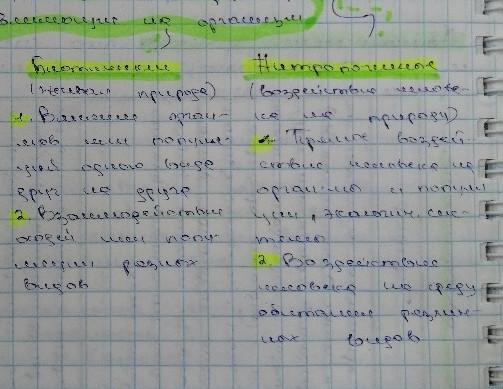 влияющие на организм
Биотические
(живая природа)
1. Влияние орган-
мов или популя-
ций одного вида
друг на друга
2. Взаимодействие
особей или попу-
ляций разных
видов
Антропогенные
(воздействие челове-
ка на природу)
1. Прямое воздей-
ствие человека на
организмы и популя
ции, экологич. сис-
темы
2. Воздействие
человека на среду
обитания различ-
ных видов